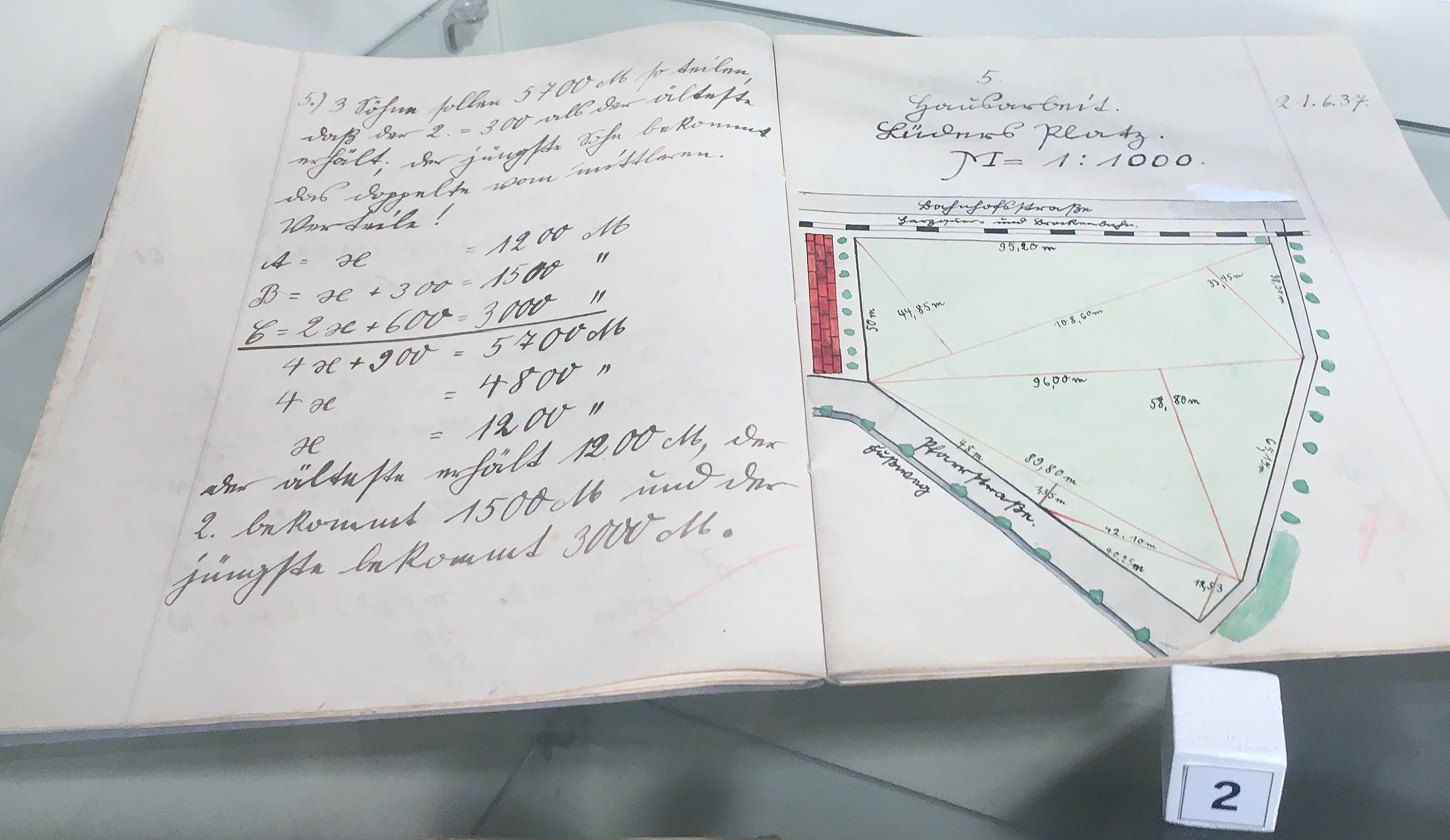 5.) 3 Söhne sollen 5700 M so teilen,
daß der 2. = 300 als der älteste
erhält, der jüngste Sohn bekommt
das doppelte vom mittleren.
Verteile!
A = x = 1200 M
B = x + 300 = 1500 "
C = 2x + 600 = 3000 "
4x + 900 = 5700 M
4x = 4800 "
x = 1200 "
der älteste erhält 1200 M, der
2. bekommt 1500 M und der
jüngste bekommt 3000 M.
5.
Hausarbeit.
21.6.37.
Lüders Platz.
M = 1:1000.
Bahnhofsstraße
und Brockenbahn.
95,20 m
50 m
44,85 m
108,60 m
96,00 m
58,80 m
48 m
89,80 m
Pfarrstraße.
Fußweg
42,10 m
2